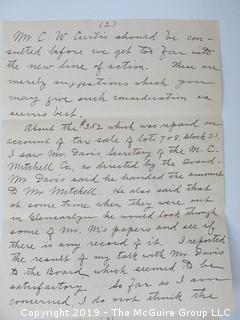 (2)
Mr C. W. Curtis should be con-
sulted before we get too far into
the new line of action. These are
merely suggestions which you
may give such consideration as
seems best.
About the $3.52 which was repaid on
account of tax sale of lots 7 & 8, block 21.
I saw Mr. Davis, Secretary of the M. C.
Mitchell Co., as directed by the Board.
Mr Davis said he handed the amount
to Mr Mitchell. He also said that
at some time when they were out
in Glencarlyn he would look through
some of Mr. M's papers and see if
there is any record of it. I reported
the result of my talk with Mr Davis
to the Board which seemed to be
satisfactory. So far as I am
concerned, I do not think the
Copyright 2019 - The McGuire Group